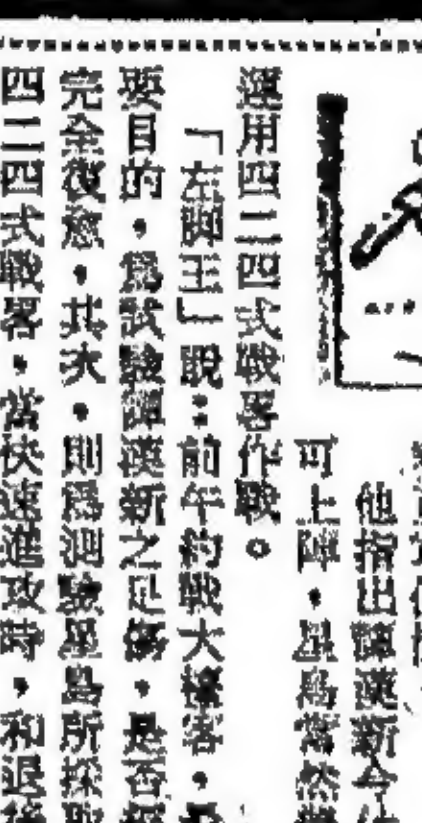 他指出陳漢新今
可上陣，星島當然
運用四二四式戰畧作戰。
「左脚王」說：前午約戰大操客，
要目的，爲試驗陳漢新之足傷，是否
完全復愈，其次，則爲測驗星島所採取
四二四式戰畧，當快速進攻時，和退